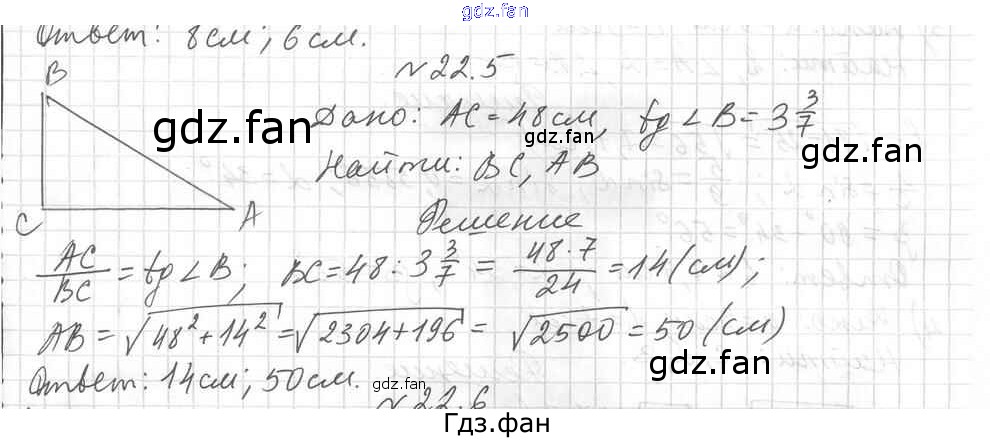 gdz.fan
Ответ: 8 см; 6 см.
№22.5
B
Дано: AC = 48 см, tg ∠B = 3 3/7
gdz.fan
gdz.fan
gdz.fan
Найти: BC, AB
C A
Решение
AC/BC = tg ∠B; BC = 48 : 3 3/7 = 48·7/24 = 14 (см);
AB = √48²+14² = √2304+196 = √2500 = 50 (см)
gdz.fan
Ответ: 14 см; 50 см.
gdz.fan
№22.6
Гдз.фан